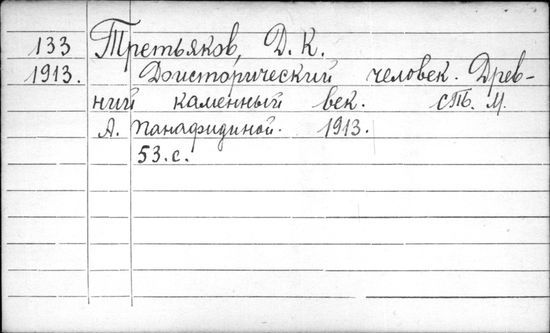 133 Третьяков, Д. К.
1913. Доисторический человек. Древ-
ний каменный век. СПб. М.
А. Панафидиной. 1913.
53. с.